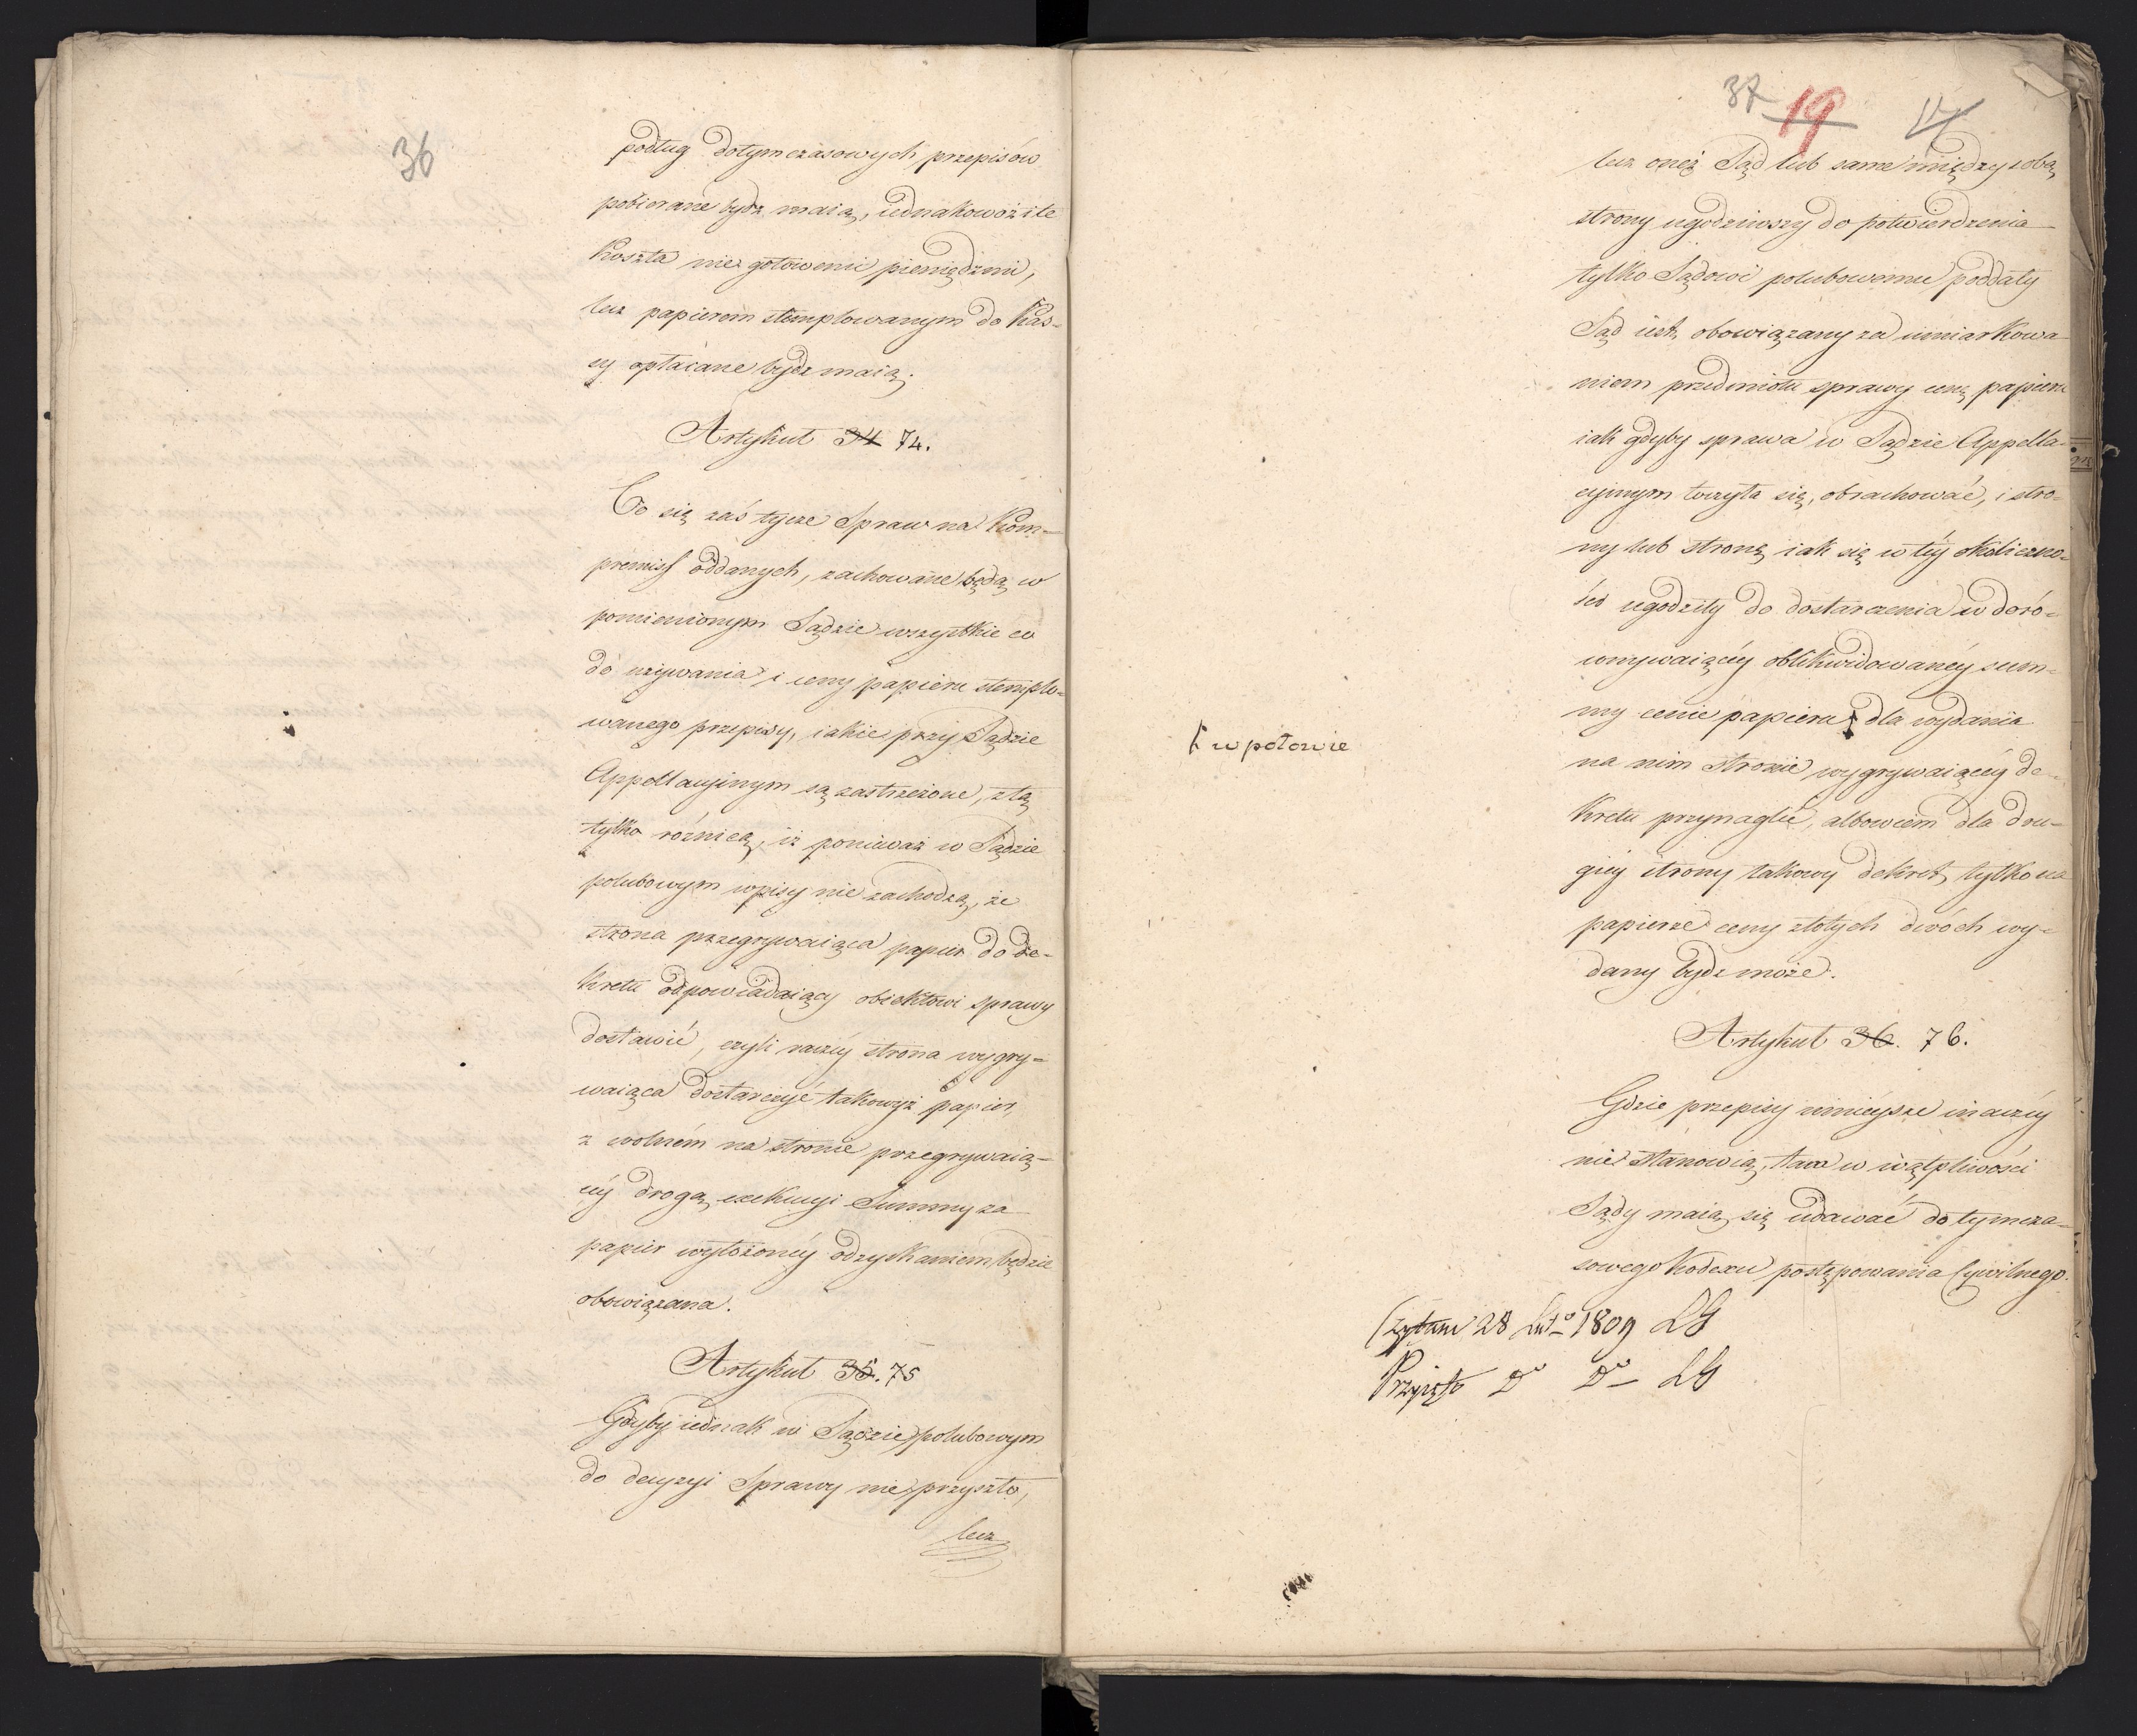 36
podług dotymczasowych przepisów
pobierane bydź maią, iednakowoż te
koszta nie gotowemi pieniędzmi,
lecz papierem stemplowanym do Kas-
sy opłacane bydź maią.
Artykuł 34 74.
Co się zaś tycze Spraw na Kom-
promiss oddanych, zachowane będą w
pomienionym Sądzie wszystkie co
do używania i ceny papieru stemplo-
wanego przepisy, iakie przy Sądzie
Appellacyinym są zastrzeżone, z tą
tylko różnicą, iż ponieważ w Sądzie
polubowym wpisy nie zachodzą, że
strona przegrywaiąca papier do de-
kretu odpowiadaiący obiektowi sprawy
dostawić, czyli raczéy strona wygry-
waiąca dostarczyć takowyż papier,
z wolném na stronie przegrywaią-
céy drogą exekucyi Summy za
papier wyłożonéy odzyskaniem będzie
obowiązana.
Artykuł 35. 75
Gdyby iednak w Sądzie polubowym
do decyzyi Sprawy nie przyszło,
lecz
37 19
lecz oneż Sąd lub same między sobą
strony ugodziwszy do potwierdzenia
tylko Sądowi polubownemu poddały
Sąd iest obowiązany za umiarkowa
niem przedmiotu sprawy cenę papieru
iak gdyby sprawa w Sądzie Appella-
cyinym toczyła się, obrachować, i stro-
ny lub stronę iak się w téy okoliczno-
ści ugodziły do dostarczenia w doró-
wnywaiącéy oblikwidowanéy sum-
my cenie papieru dla wydania
w połowie
na nim stronie wygrywaiącéy de-
kretu przynaglić, albowiem dla dru-
giéy strony takowy dekret tylko na
papierze ceny złotych dwóch wy-
dany bydź może.
Artykuł 36. 76.
Gdzie przepisy ninieysze inaczéy
nie stanowią, tam w wątpliwości
Sądy maią się udawać do tymcza-
sowego Kodexu postępowania Cywilnego.
Czytane 28 Lut° 1809 LG
Przyięto D° D° LG